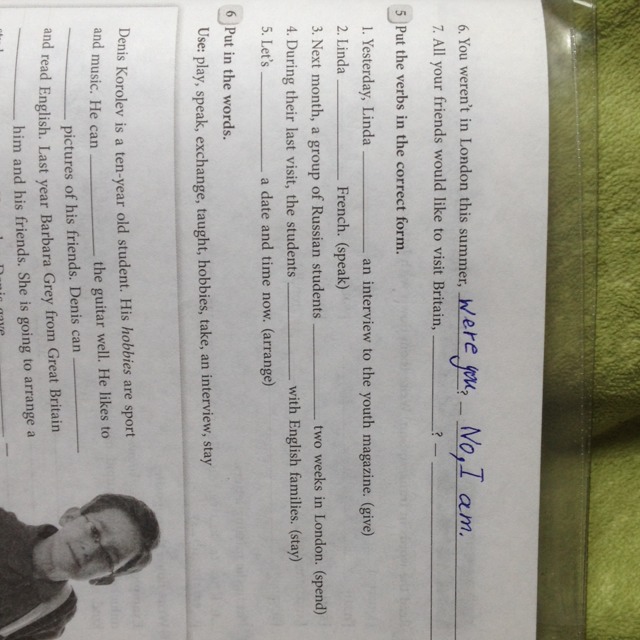 6. You weren't in London this summer, were you? – No, I am.
7. All your friends would like to visit Britain, ? –
5 Put the verbs in the correct form.
1. Yesterday, Linda an interview to the youth magazine. (give)
2. Linda French. (speak)
3. Next month, a group of Russian students two weeks in London. (spend)
4. During their last visit, the students with English families. (stay)
5. Let's a date and time now. (arrange)
6 Put in the words.
Use: play, speak, exchange, taught, hobbies, take, an interview, stay
Denis Korolev is a ten-year old student. His hobbies are sport
and music. He can the guitar well. He likes to
pictures of his friends. Denis can
and read English. Last year Barbara Grey from Great Britain
him and his friends. She is going to arrange a